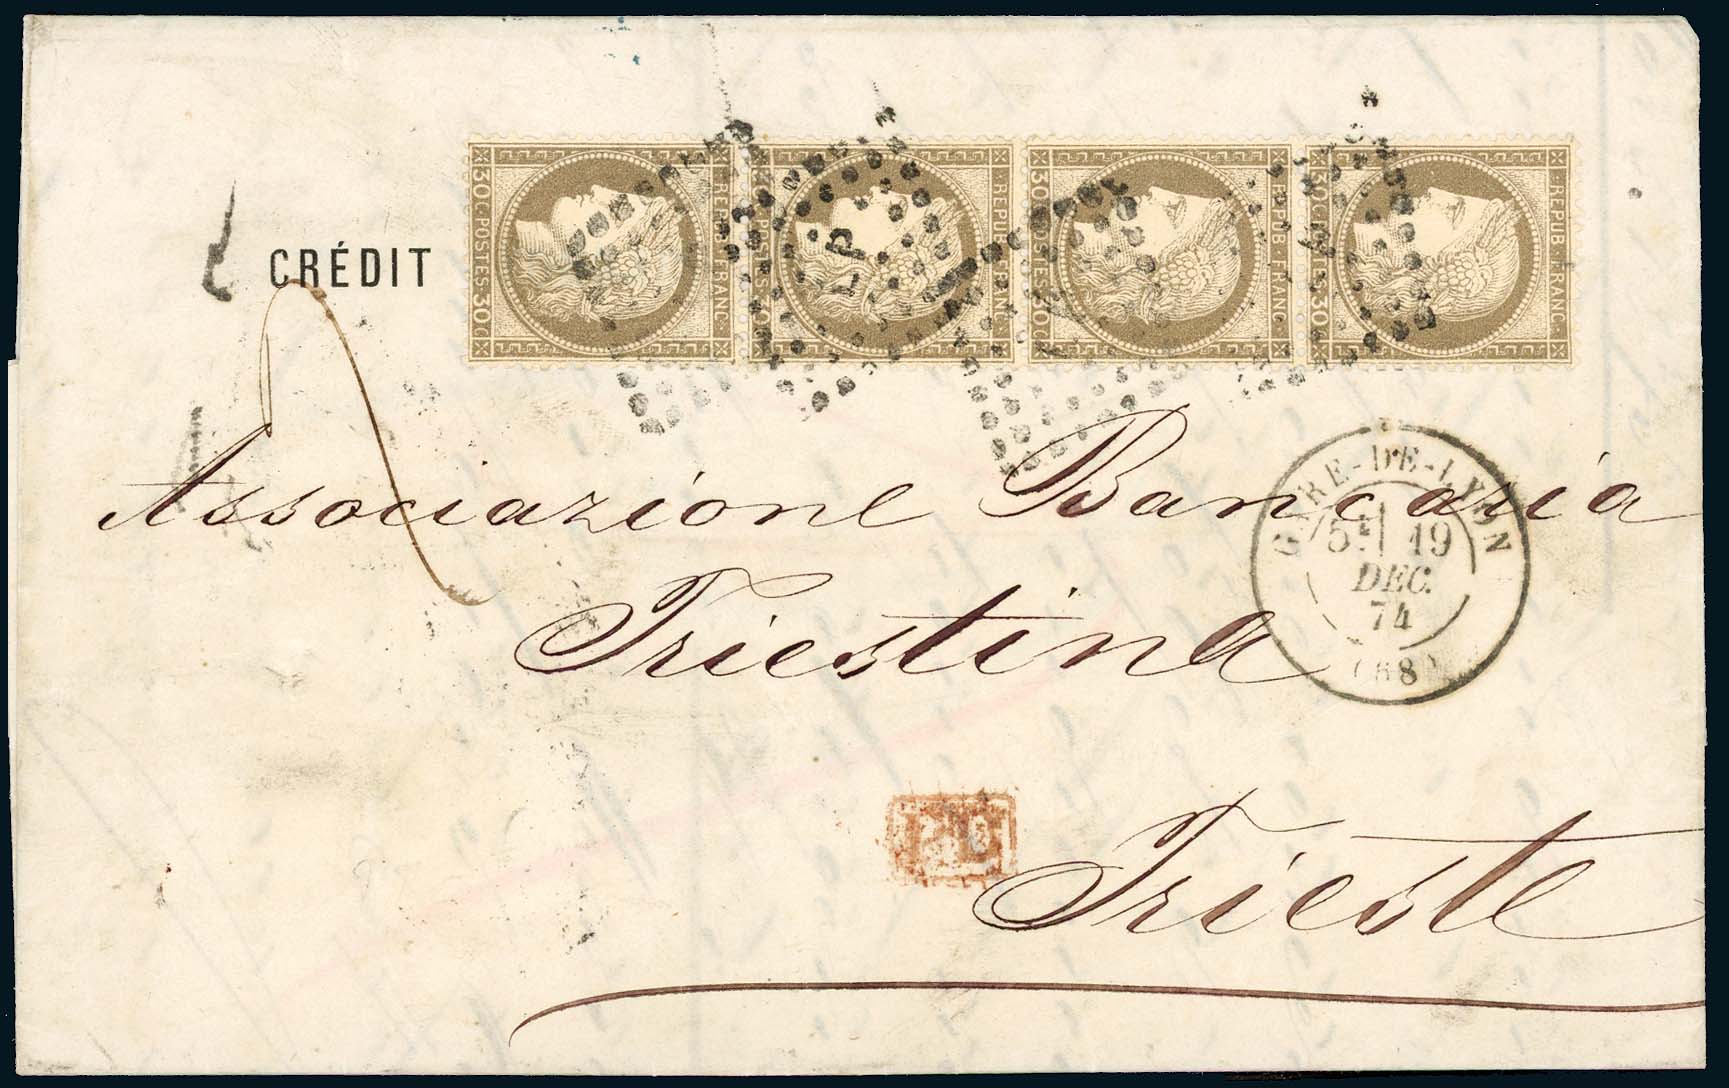 30 C. POSTES 30 C REPUB. FRANC.
POSTES 30 REPUB FRANC.
30 C. POSTES 30 C REPUB. FRANC.
30 C 30 REPUB. FRANC.
LP
CRÉDIT
Associazione Bancaria
Triestina
Trieste
GARE-DE-LYON
5E 19
DEC.
74
(68)
PD